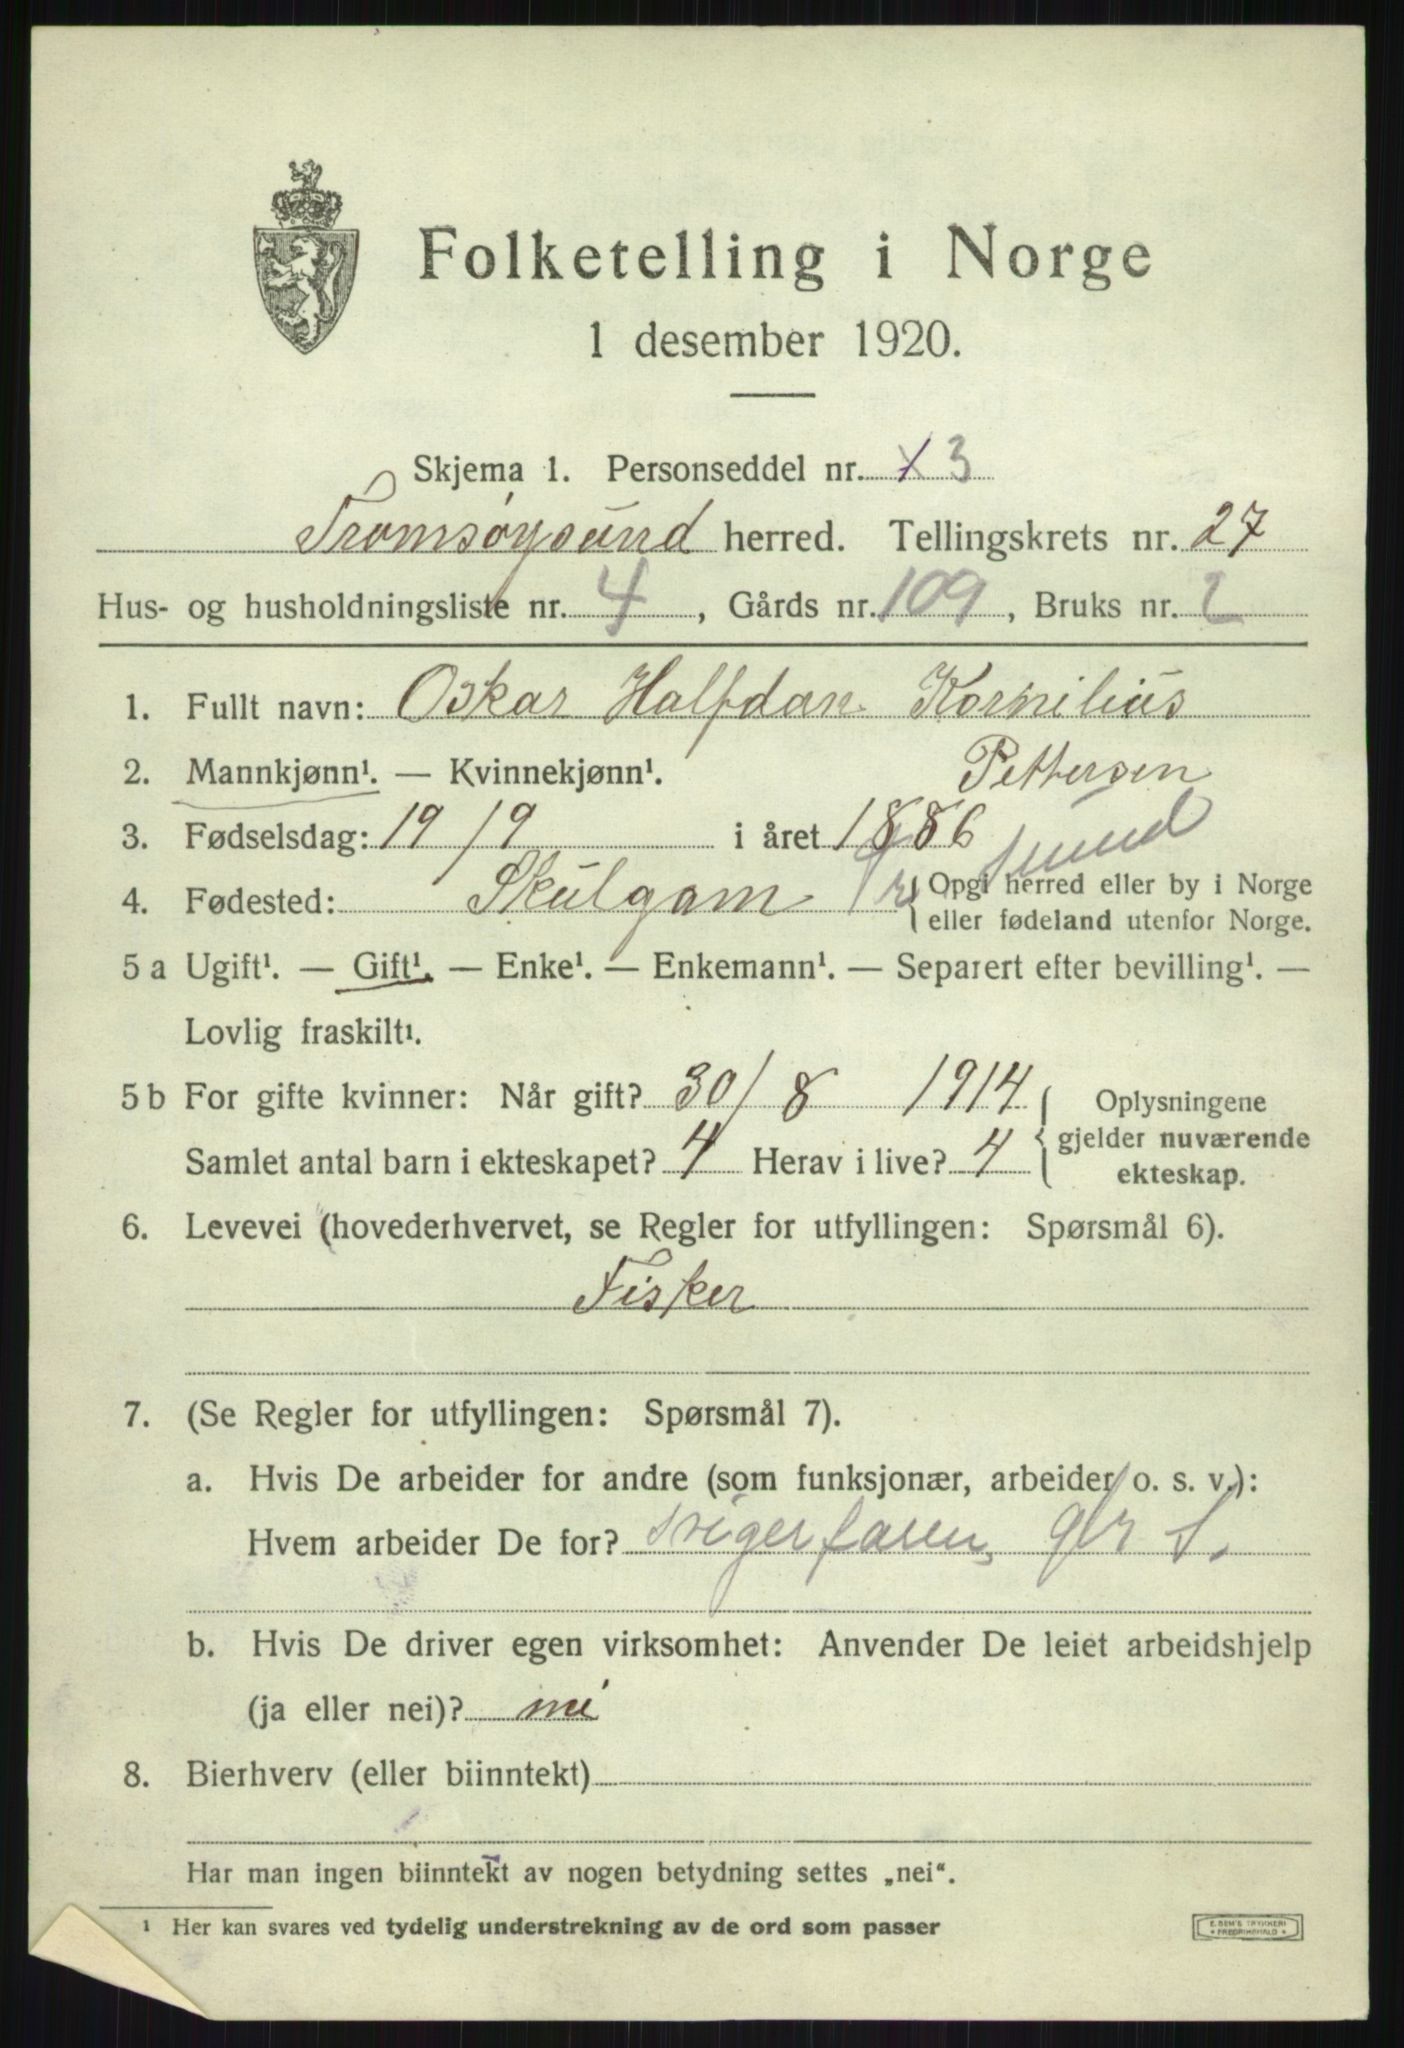 Folketelling i Norge
1 desember 1920.
Skjema 1. Personseddel nr. x 3
Tromsøysund herred. Tellingskrets nr. 27
Hus- og husholdningsliste nr. 4, Gårds nr. 109, Bruks nr. 2
1. Fullt navn: Oskar Halfdan Kornilius
Pettersen
2. Mannkjønn¹. — Kvinnekjønn¹.
3. Fødselsdag: 19/9 i året 1886
4. Fødested: Skulgam Tr sund { Opgi herred eller by i Norge
eller fødeland utenfor Norge.
5 a Ugift¹. — Gift¹. — Enke¹. — Enkemann¹. — Separert efter bevilling¹. —
Lovlig fraskilt¹.
5 b For gifte kvinner: Når gift? 30/8 1914
Samlet antal barn i ekteskapet? 4 Herav i live? 4
Oplysningene
gjelder nuværende
ekteskap.
6. Levevei (hovederhvervet, se Regler for utfyllingen: Spørsmål 6).
Fisker
7. (Se Regler for utfyllingen: Spørsmål 7).
a. Hvis De arbeider for andre (som funksjonær, arbeider o. s. v.):
Hvem arbeider De for? svigerfaren,
b. Hvis De driver egen virksomhet: Anvender De leiet arbeidshjelp
(ja eller nei)? nei
8. Bierhverv (eller biinntekt)
Har man ingen biinntekt av nogen betydning settes „nei“.
¹ Her kan svares ved tydelig understrekning av de ord som passer
E. SEM'S TRYKKERI
* FREDRIKSHALD *